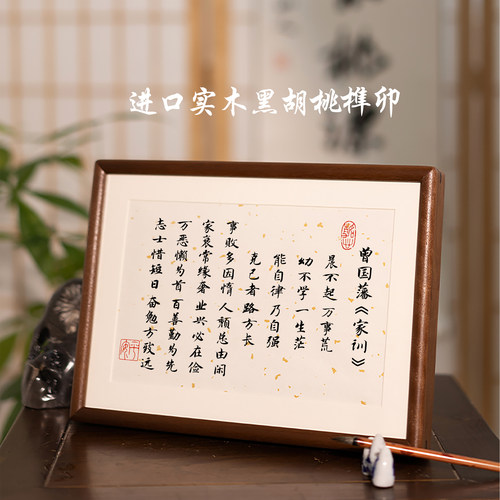 进口实木黑胡桃榫卯
曾国藩《家训》
晨不起万事荒
幼不学一生茫
能自律乃自强
克己者路方长
事败多因惰 人颓总由闲
家衰常缘奢 业兴必在俭
万恶懒为首 百善勤为先
志士惜短日 奋勉方致远